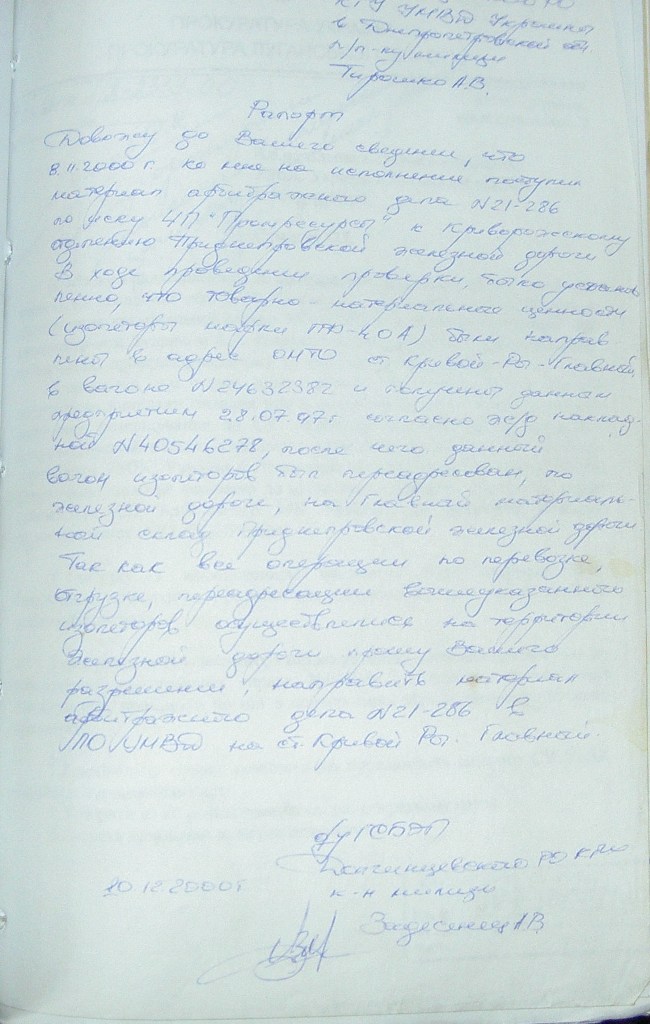 КГУ УМВД Украины
в Днепропетровской обл.
п/п-ку милиции
Тирошко А.В.
Рапорт
Довожу до Вашего сведения, что
8.11.2000 г. ко мне на исполнение поступил
материал арбитражного дела N21-286
по иску ЧП "Промресурсы" к Криворожскому
отделению Приднепровской железной дороги
В ходе проведения проверки, было установ
лено, что товарно-материальные ценности
(изоляторы марки ПФ-40А) были направ-
лены в адрес ОМТО ст. Кривой-Рог-Главный,
в вагоне N24632382 и получены данным
предприятием 28.07.97г согласно ж/д наклад-
ной N40546278, после чего данный
вагон изоляторов был переадресован, по
железной дороге, на Главный материаль-
ный склад Приднепровской железной дороги
Так как все операции по перевозке,
отгрузке, переадресации вышеуказанного
изоляторов осуществлялись на территории
железной дороги прошу Вашего
разрешения, направить материал
арбитражного дела N21-286 в
ЛО УМВД на ст. Кривой Рог. Главный.
О/у ГСБЭП
Долгинцевского РО КГУ
к-н милиции
10.12.2000г
Задесенец А.В.